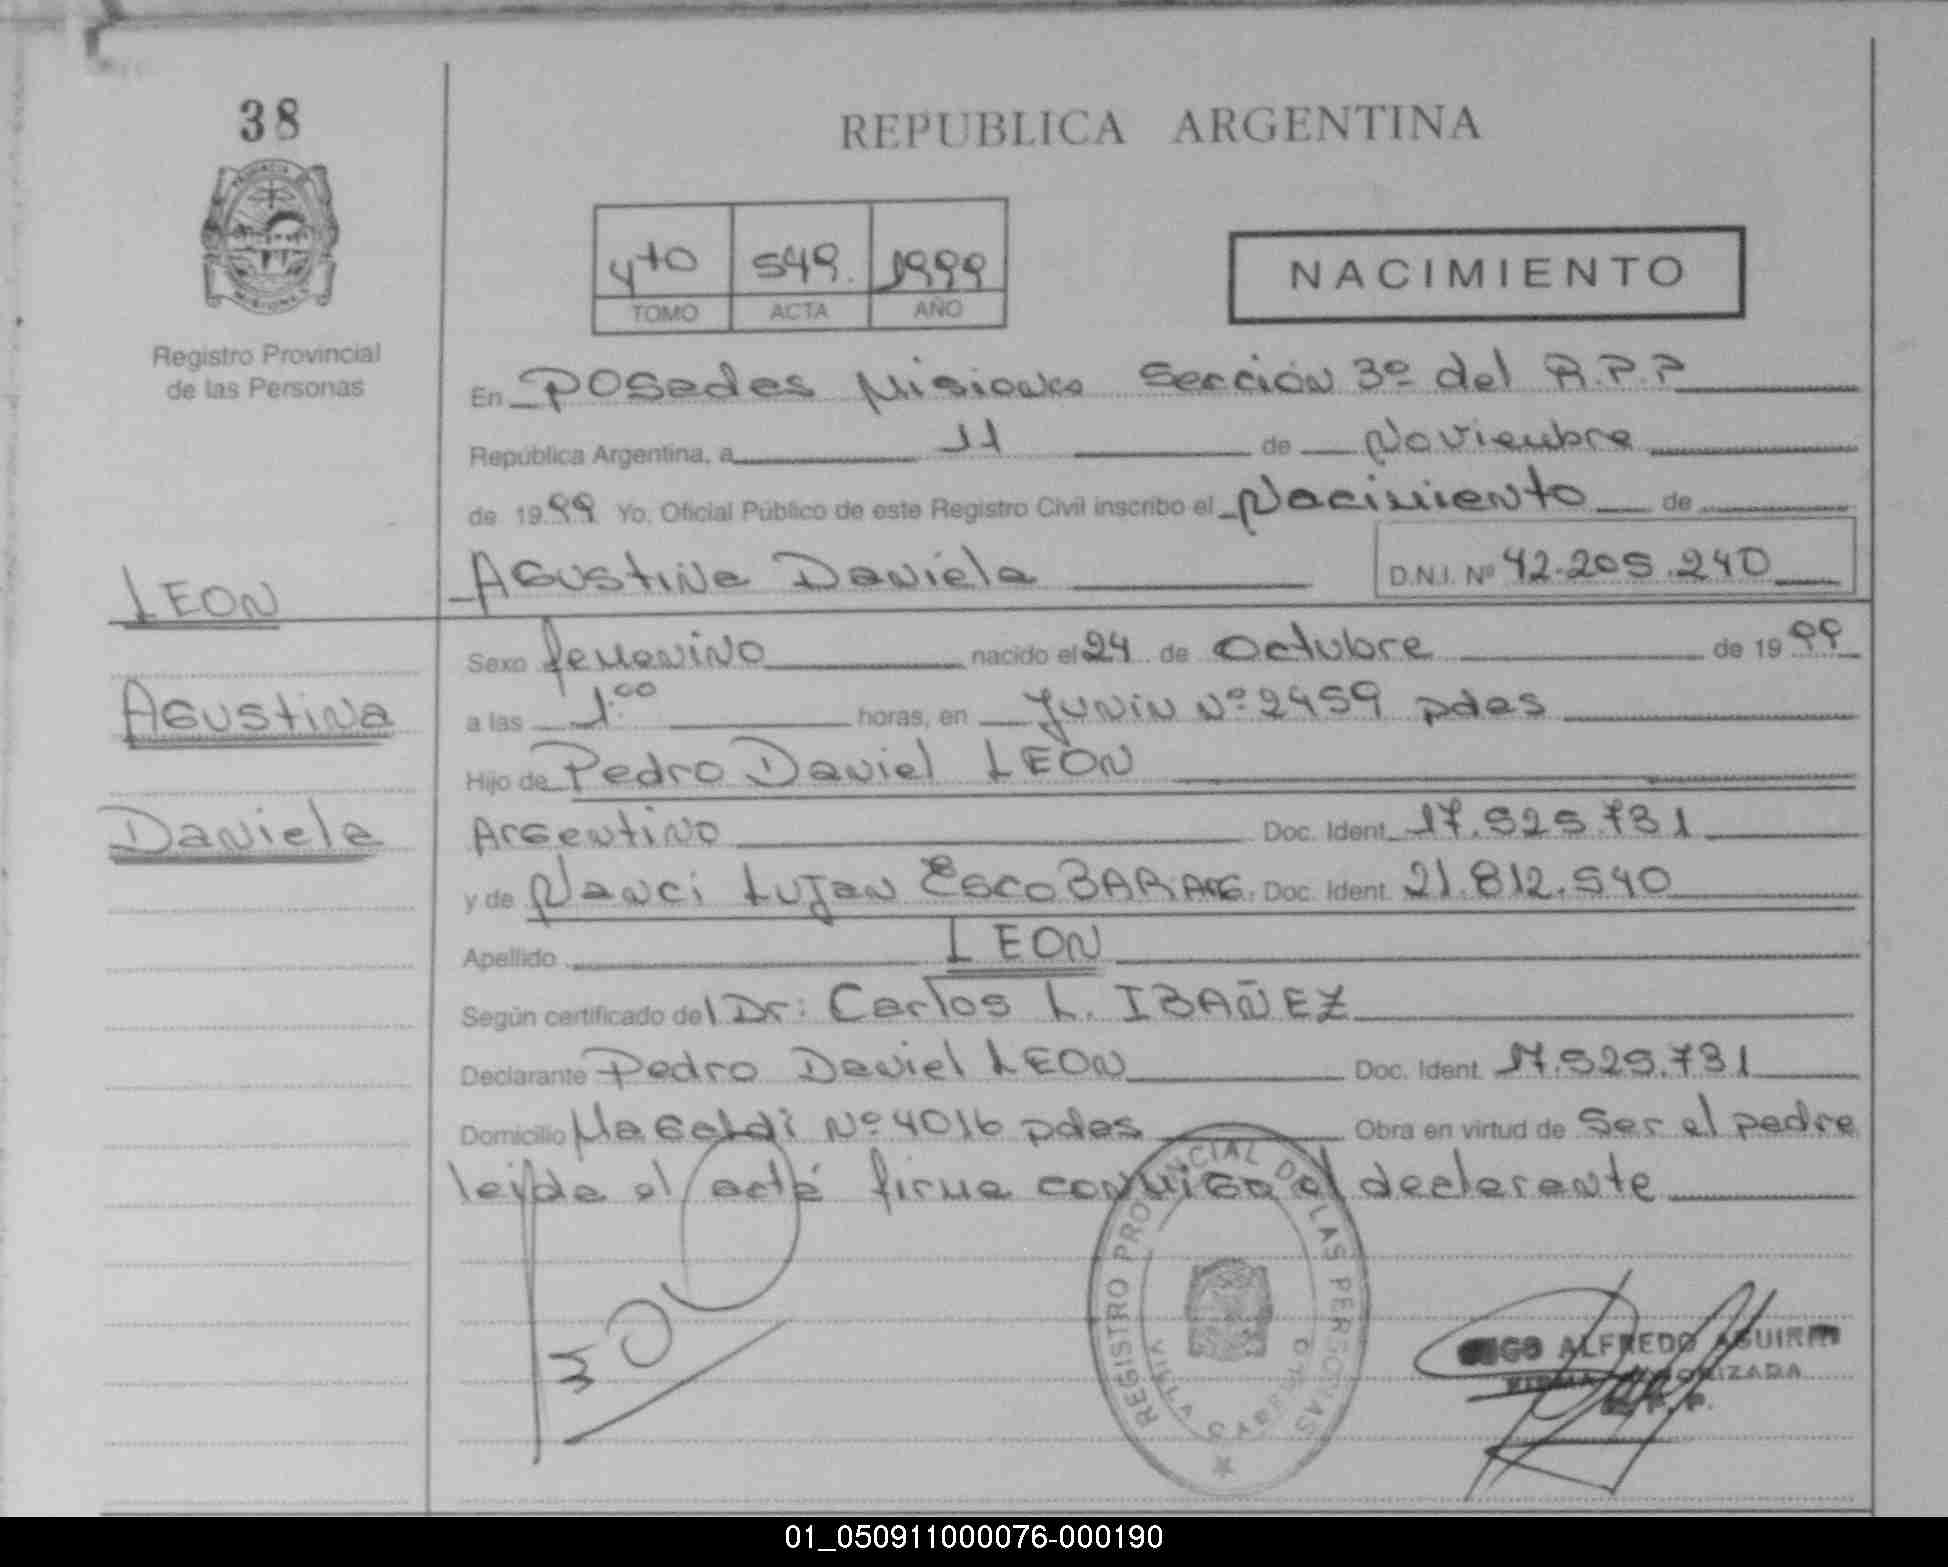 38
REPUBLICA ARGENTINA
4to 549. 1999
TOMO ACTA AÑO
NACIMIENTO
Registro Provincial
de las Personas
En Posadas Misiones Sección 3º del R.P.P
República Argentina, a 11 de Noviembre
de 1999 Yo, Oficial Público de este Registro Civil inscribo el Nacimiento de
LEON
AGustina Daniela D.N.I. Nº 42.205.240
Sexo femenino nacido el 24 de Octubre de 1999
AGustina
a las 1:00 horas, en Junin Nº 2459 pdas
Hijo de Pedro Daniel LEON
Daniela
ArGentino Doc. Ident. 17.525.731
y de Nanci Lujan EscoBAR ARG. Doc. Ident. 21.812.540
Apellido LEON
Según certificado del Dr: Carlos L. IBAÑEZ
Declarante Pedro Daniel LEON Doc. Ident. 17.525.731
Domicilio MaGaldi Nº 4016 pdas Obra en virtud de Ser el padre
leída el acta firma conmiGo el declarante
REGISTRO PROVINCIAL DE LAS PERSONAS
VILLA CABELLO
ALFREDO AGUIRRE
FIRMA AUTORIZADA
01_050911000076-000190